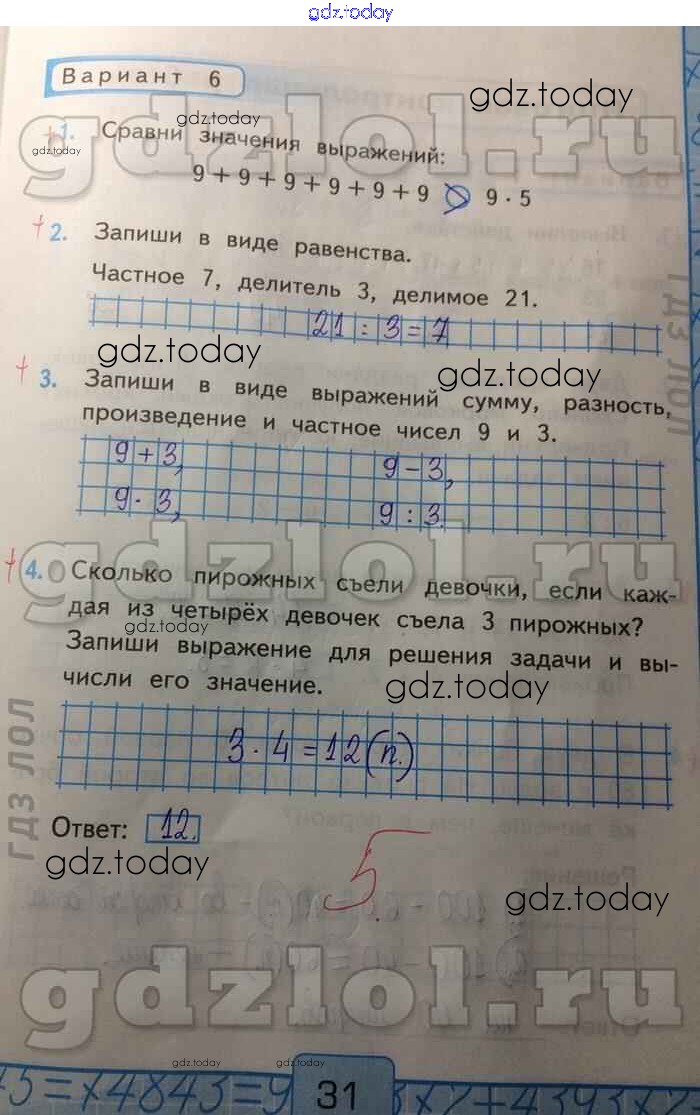 gdz.today
Вариант 6
gdz.today
gdz.today
+1. Сравни значения выражений:
gdz.today
9 + 9 + 9 + 9 + 9 + 9 > 9 · 5
+ 2. Запиши в виде равенства.
Частное 7, делитель 3, делимое 21.
21 : 3 = 7
gdz.today
gdz.today
+ 3. Запиши в виде выражений сумму, разность,
произведение и частное чисел 9 и 3.
9 + 3, 9 - 3,
9 · 3, 9 : 3.
gdzlol.ru
+ 4. Сколько пирожных съели девочки, если каж-
дая из четырёх девочек съела 3 пирожных?
gdz.today
Запиши выражение для решения задачи и вы-
числи его значение.
gdz.today
3 · 4 = 12 (п.)
Ответ: 12.
5
gdz.today
gdz.today
gdzlol.ru
gdz.today
gdz.today
31
gdzlol.ru
ГДЗ ЛОЛ
ГДЗ ЛОЛ